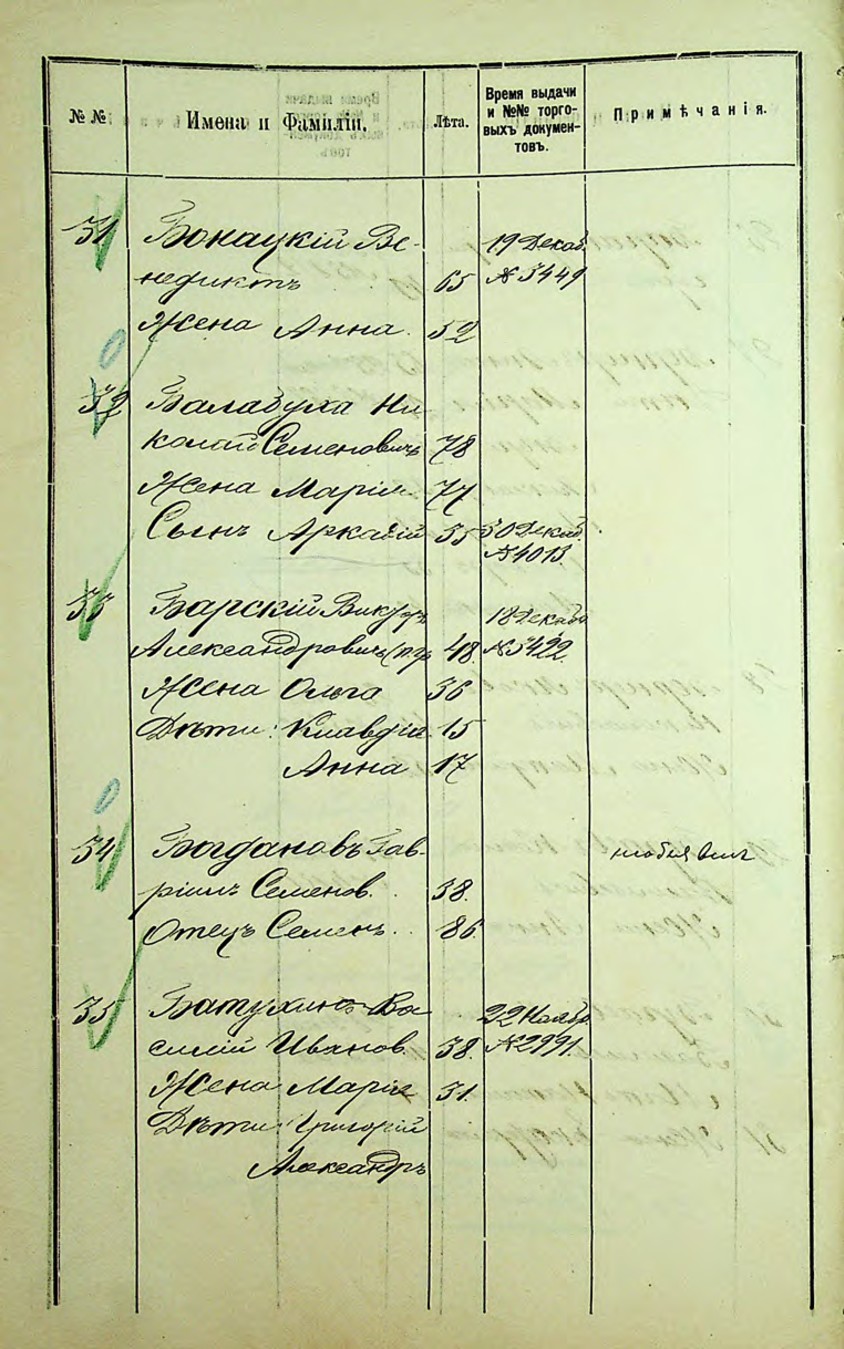 № №
Имена и Фамиліи.
Лѣта.
Время выдачи
и №№ торго-
выхъ докумен-
товъ.
Примѣчанія.
31 Бонацкій Ве- 19 Декаб.
недиктъ 65 № 3449
Жена Анна. 52
32 Балабуха Ни-
колай Семеновичъ 78
Жена Марія 77
Сынъ Аркадій 35 30 Декаб.
№ 4013.
33 Барскій Викторъ 18 Декабр
Александровичъ 48. № 3422.
Жена Ольга 36
Дѣти: Клавдія 15
Анна 17
34 Богдановъ Гав-
ріилъ Семенов. 38.
Отецъ Семенъ. 86.
35 Батухинъ Ва- 22 Ноябр.
силій Иванов. 38. № 2991.
Жена Марія 31.
Дѣти: Григорій
Александръ